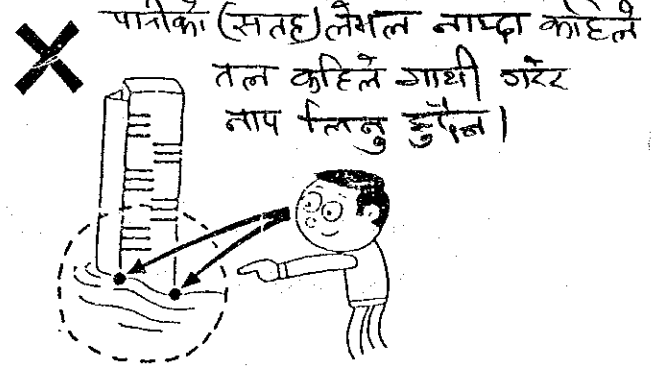 पानीको (सतह) लेभल नाप्दा कहिले
तल कहिले माथी गरेर
नाप लिनु हुदैन।